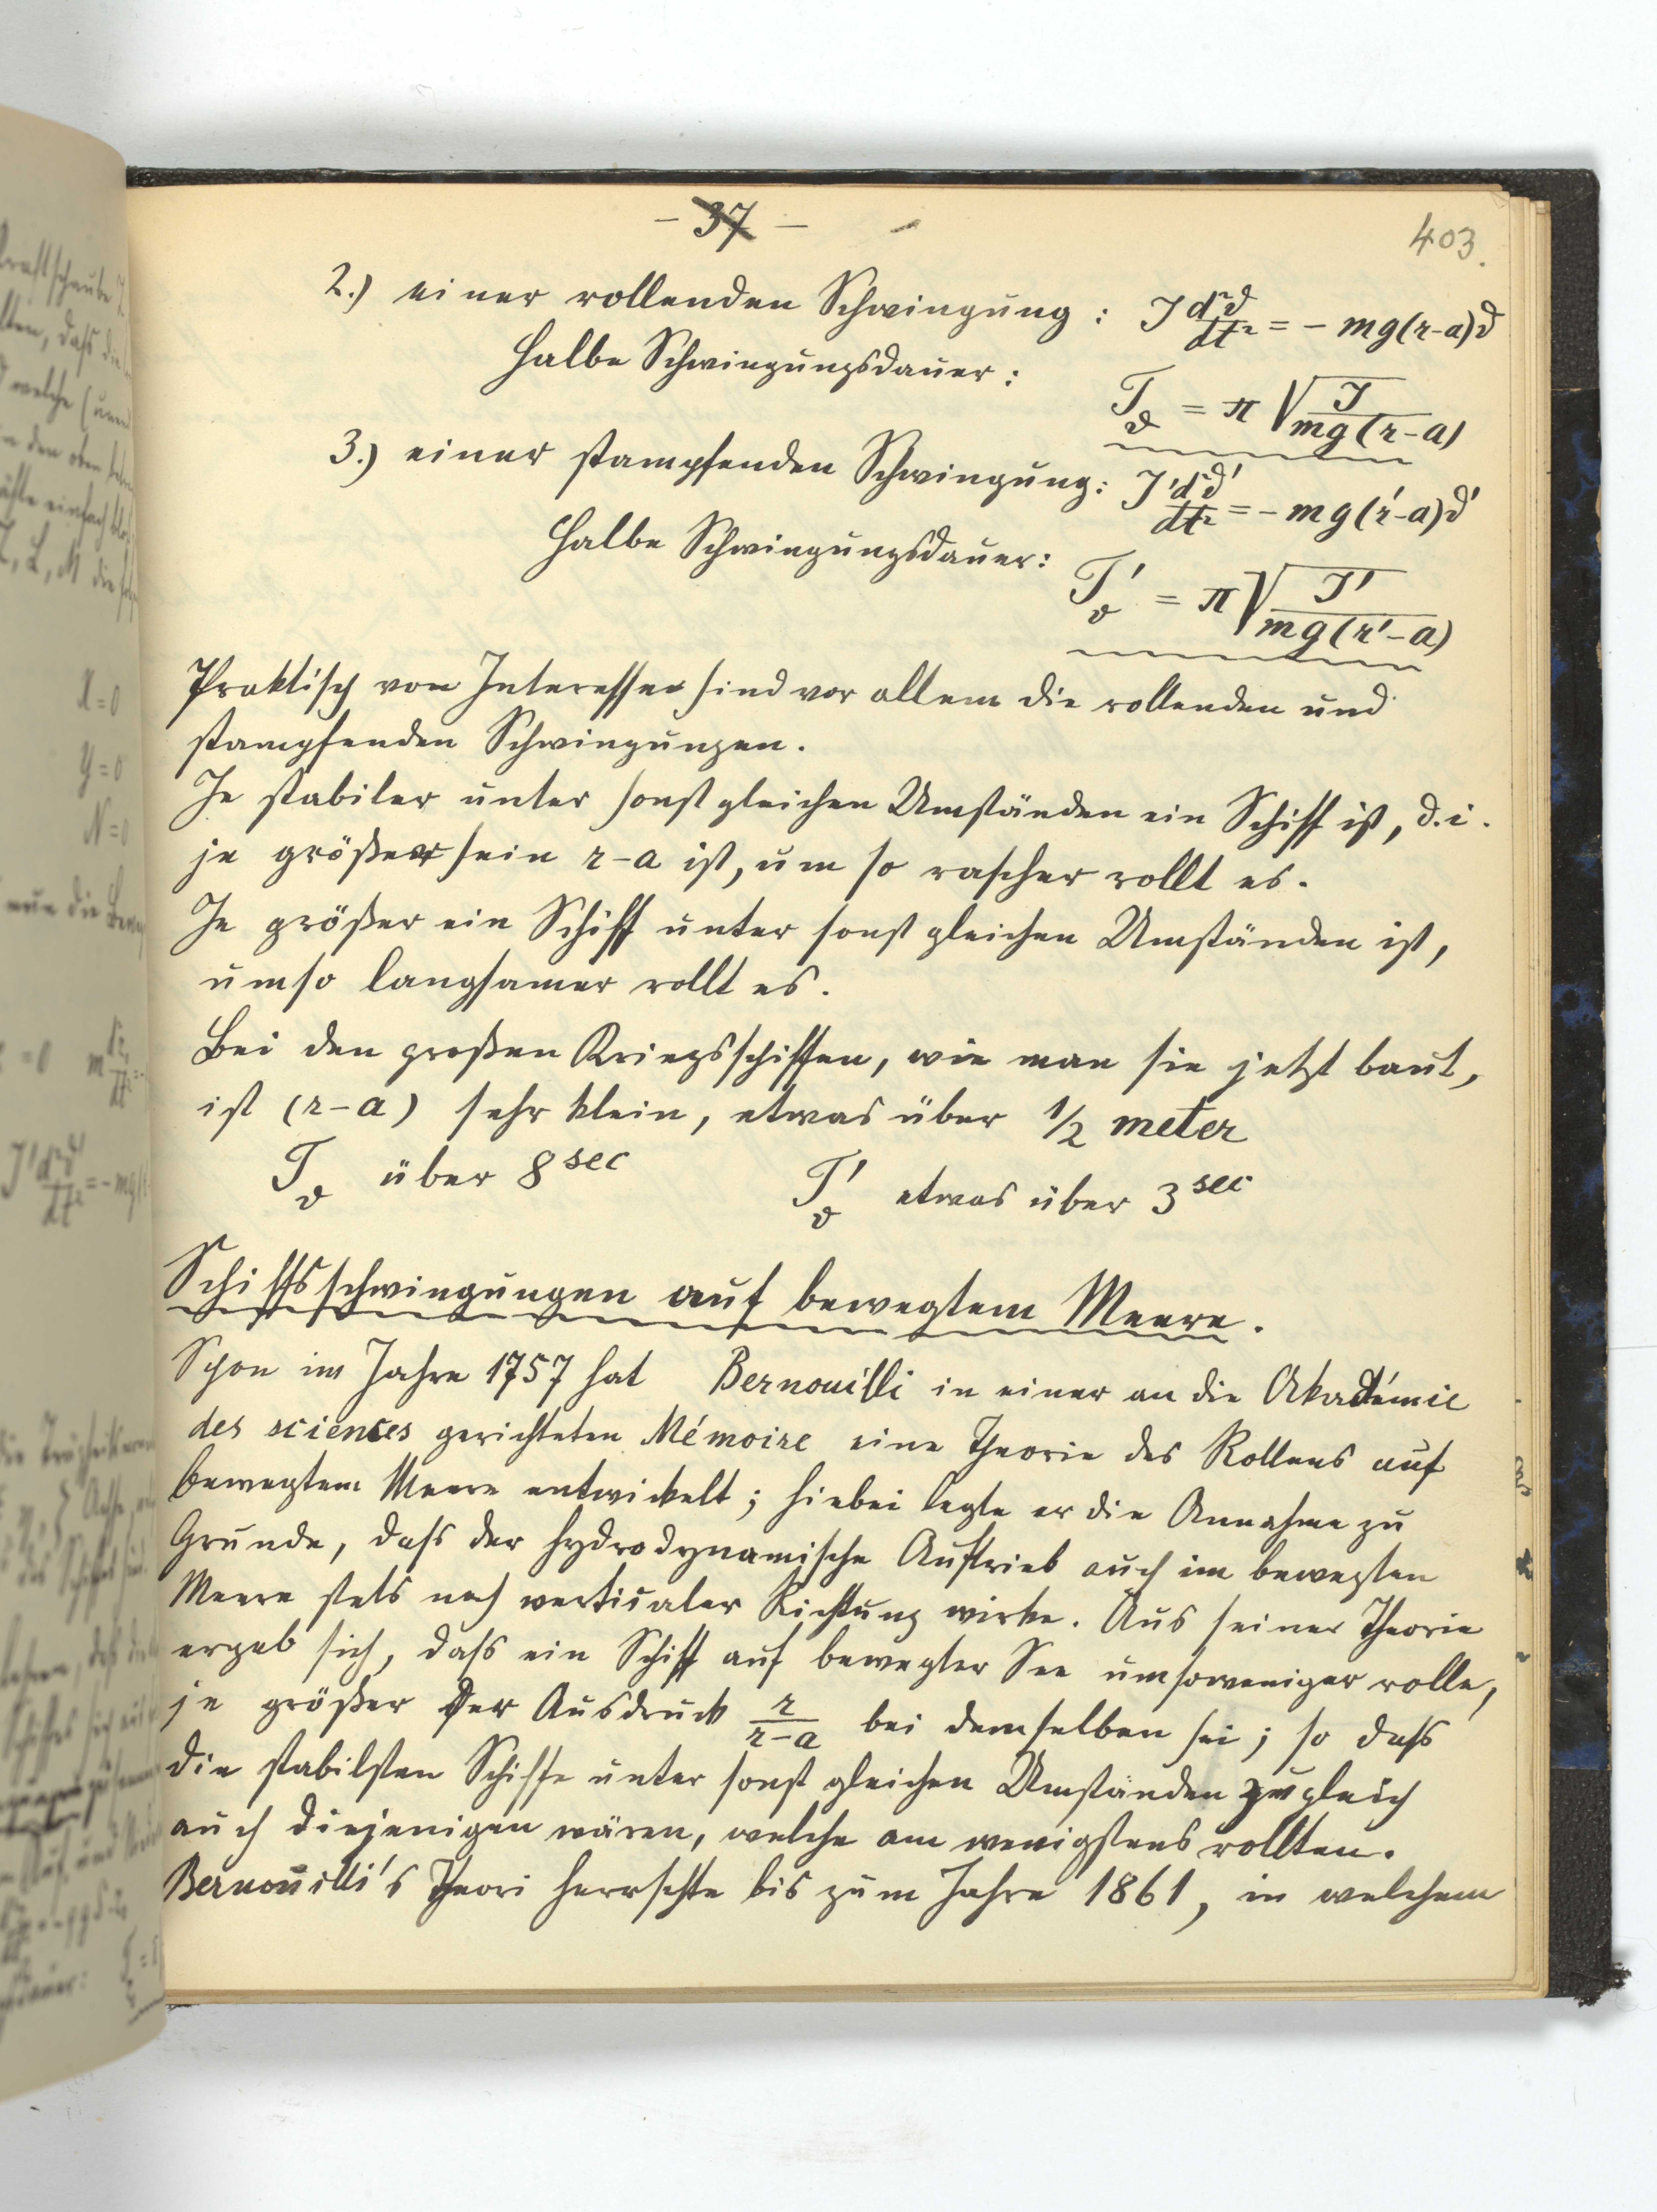 - 37 -
403.
2.) einer rollenden Schwingung : J d²ϑ/dt² = - mg(r-a)ϑ
Halbe Schwingungsdauer : T_ϑ = π √(J/mg(r-a))
3.) einer stampfenden Schwingung: J' d²ϑ'/dt² = - mg(r'-a)ϑ'
Halbe Schwingungsdauer: T'_ϑ = π √(J'/mg(r'-a))
Praktisch von Interesse sind vor allem die rollenden und
stampfenden Schwingungen.
Je stabiler unter sonst gleichen Umständen ein Schiff ist, d.i.
je größer sein r-a ist, um so rascher rollt es.
Je größer ein Schiff unter sonst gleichen Umständen ist,
umso langsamer rollt es.
Bei den großen Kriegsschiffen, wie man sie jetzt baut,
ist (r-a) sehr klein, etwas über 1/2 meter
T_ϑ über 8 sec T'_ϑ etwas über 3 sec
Schiffsschwingungen auf bewegtem Meere.
Schon im Jahre 1757 hat Bernouilli in einer an die Akadémie
des sciences gerichteten Mémoire eine Theorie des Rollens auf
bewegtem Meere entwickelt; hiebei legte er die Annahme zu
Grunde, dass der hydrodynamische Auftrieb auch im bewegten
Meere stets nach verticaler Richtung wirke. Aus seiner Theorie
ergab sich, dass ein Schiff auf bewegter See umsoweniger rolle,
je größer der Ausdruck r/(r-a) bei demselben sei; so dass
die stabilsten Schiffe unter sonst gleichen Umständen zugleich
auch diejenigen wären, welche am wenigstens rollten.
Bernouilli's Theori herrschte bis zum Jahre 1861, in welchem